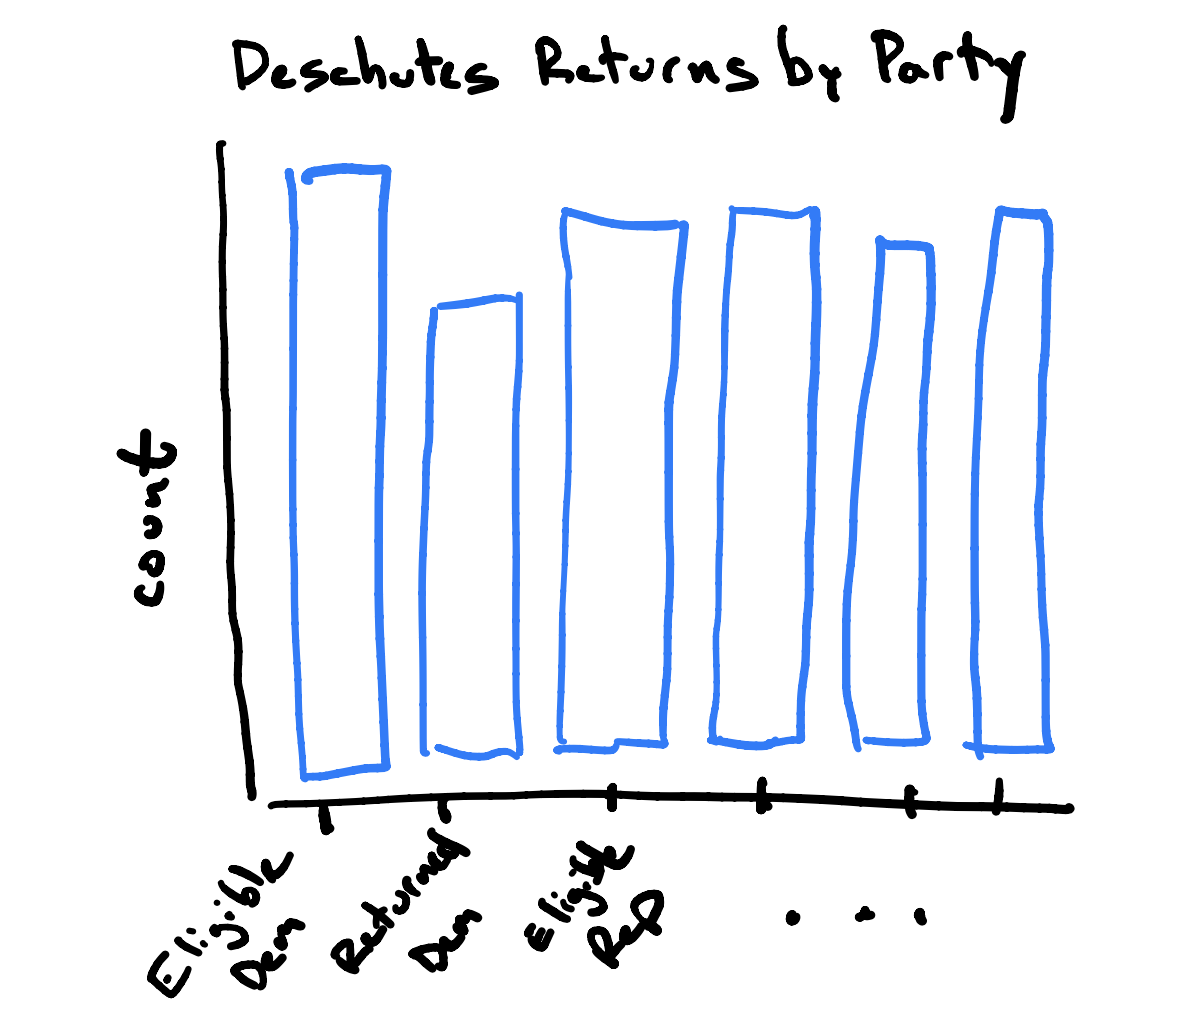 Deschutes Returns by Party
count
Eligible
Dem
Returned
Dem
Eligible
Rep
...